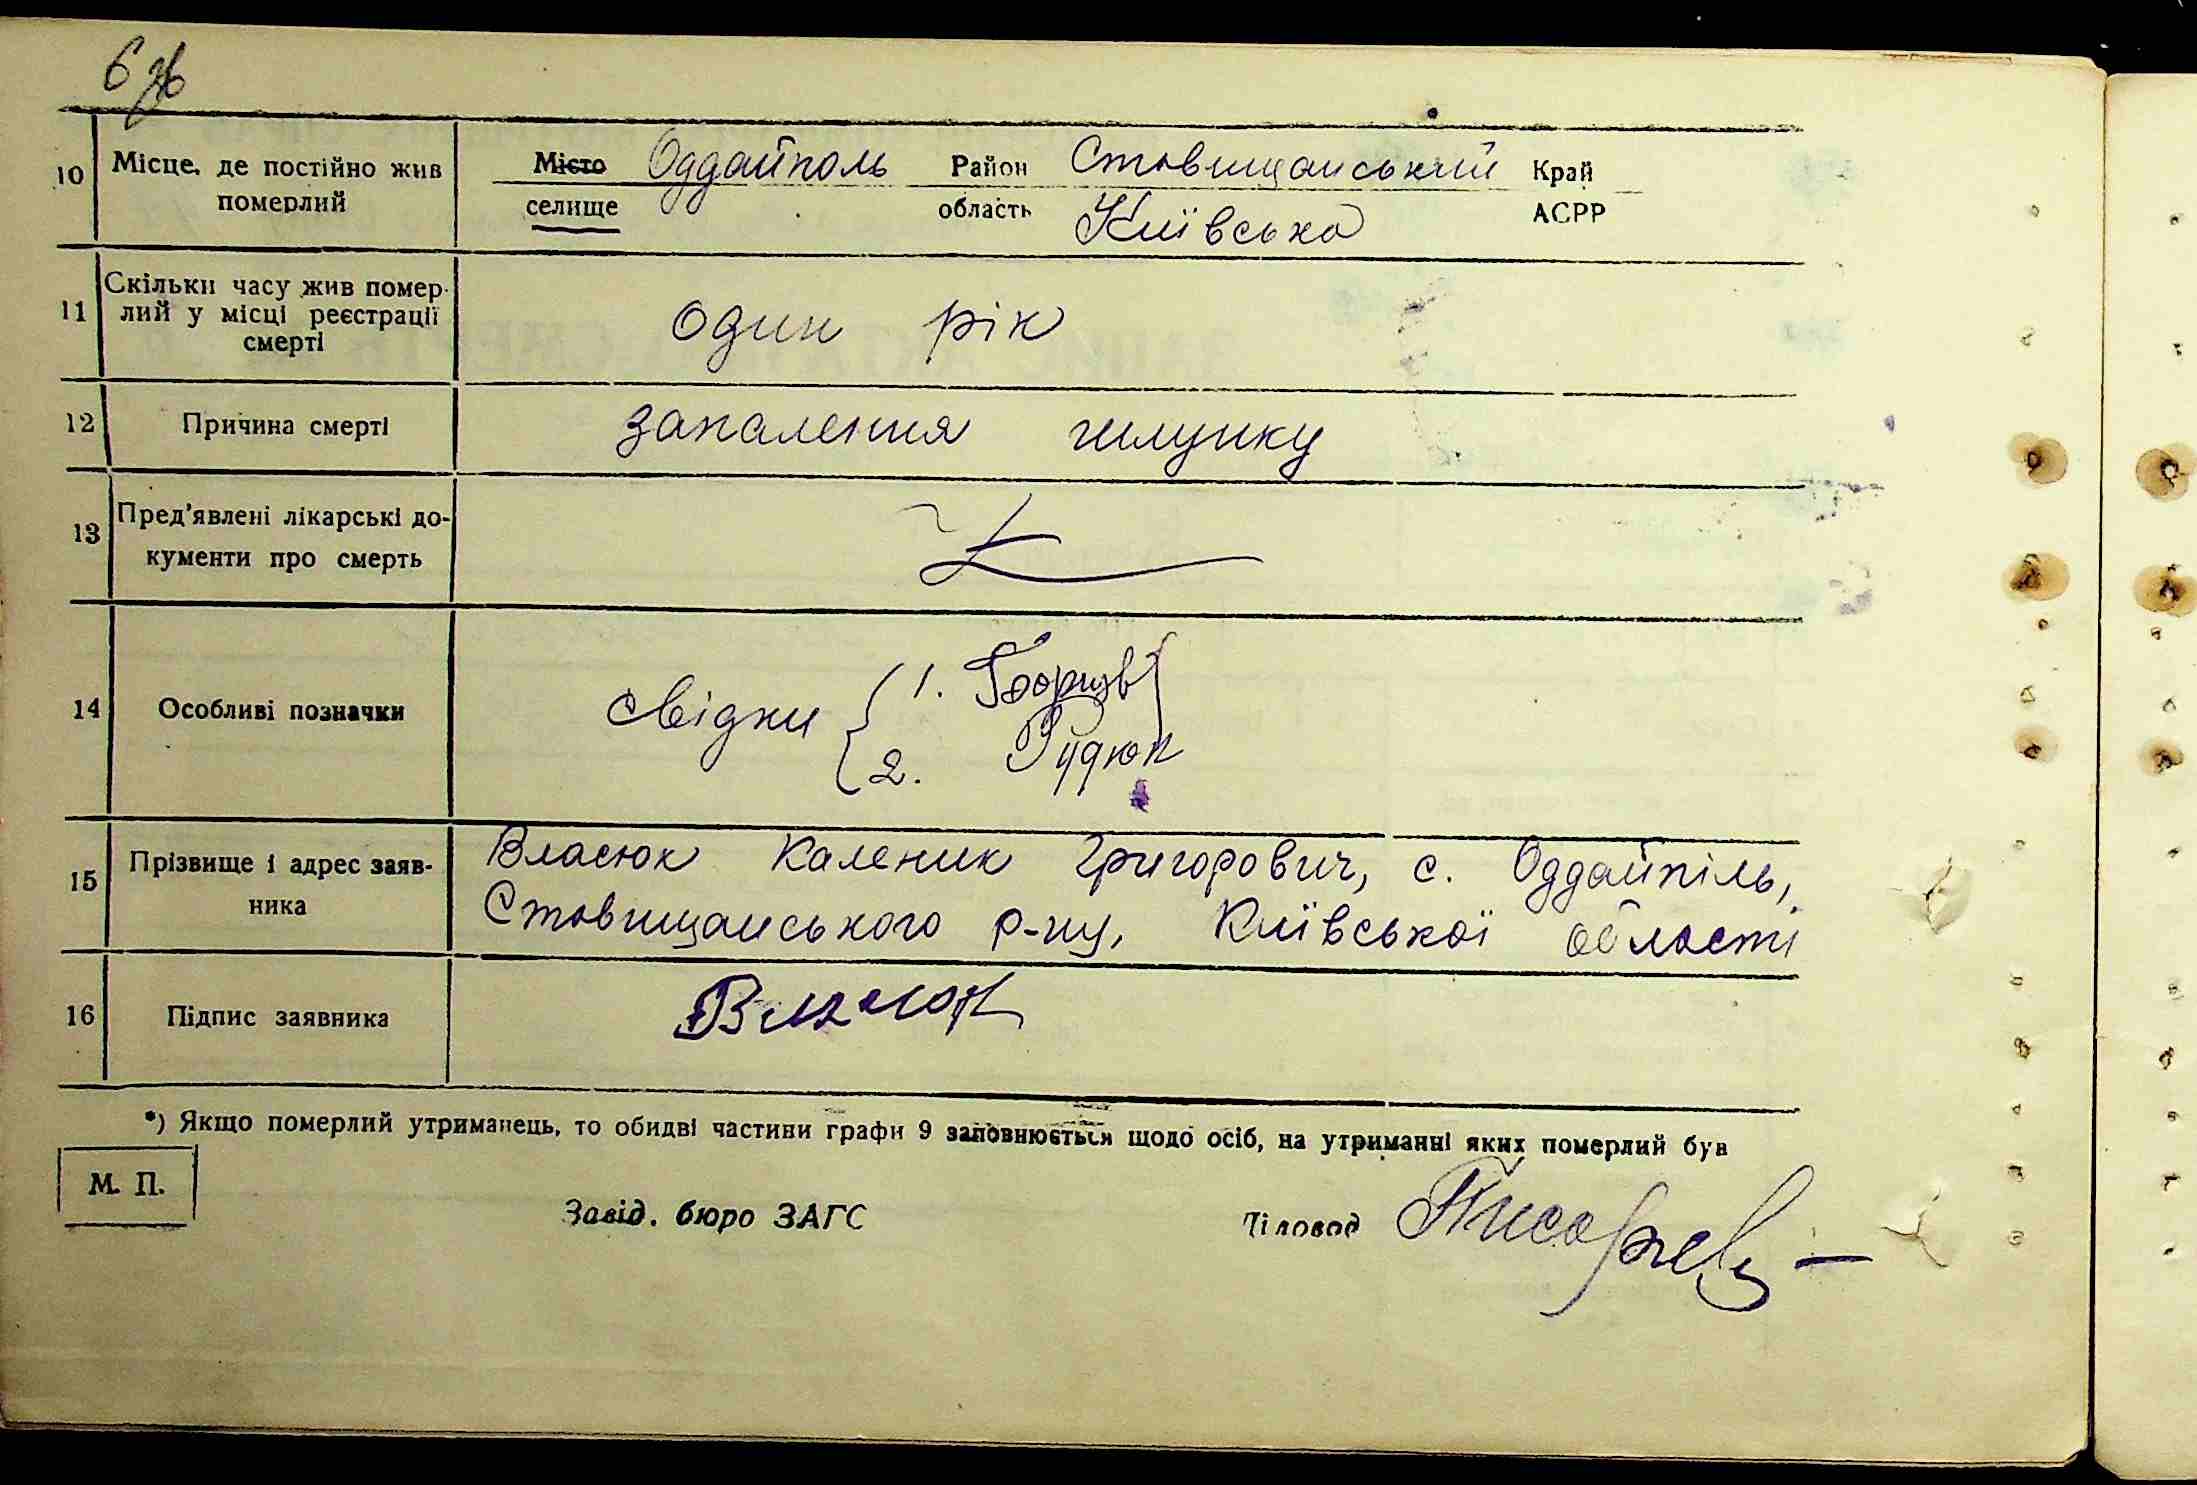 6 зв
10 Місце, де постійно жив Місто Оддайполь Район Ставищанський Край
померлий селище область Київська АСРР
11 Скільки часу жив помер-
лий у місці реєстрації один рік
смерті
12 Причина смерті запалення шлунку
13 Пред'явлені лікарські до-
кументи про смерть
14 Особливі позначки свідки 1.
2. Рудюк
15 Прізвище і адрес заяв- Власюк Каленик Григорович, с. Оддайпіль,
ника Ставищанського р-ну, Київської області
16 Підпис заявника Власюк
*) Якщо померлий утриманець, то обидві частини графи 9 заповнюється щодо осіб, на утриманні яких померлий був
М. П.
Завід. бюро ЗАГС Діловод